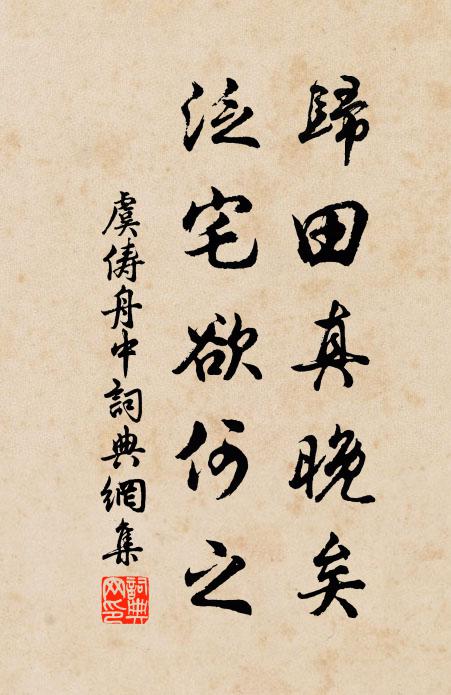 歸田真晚矣
泛宅欲何之
虞儔舟中詞典網集
詞典网印